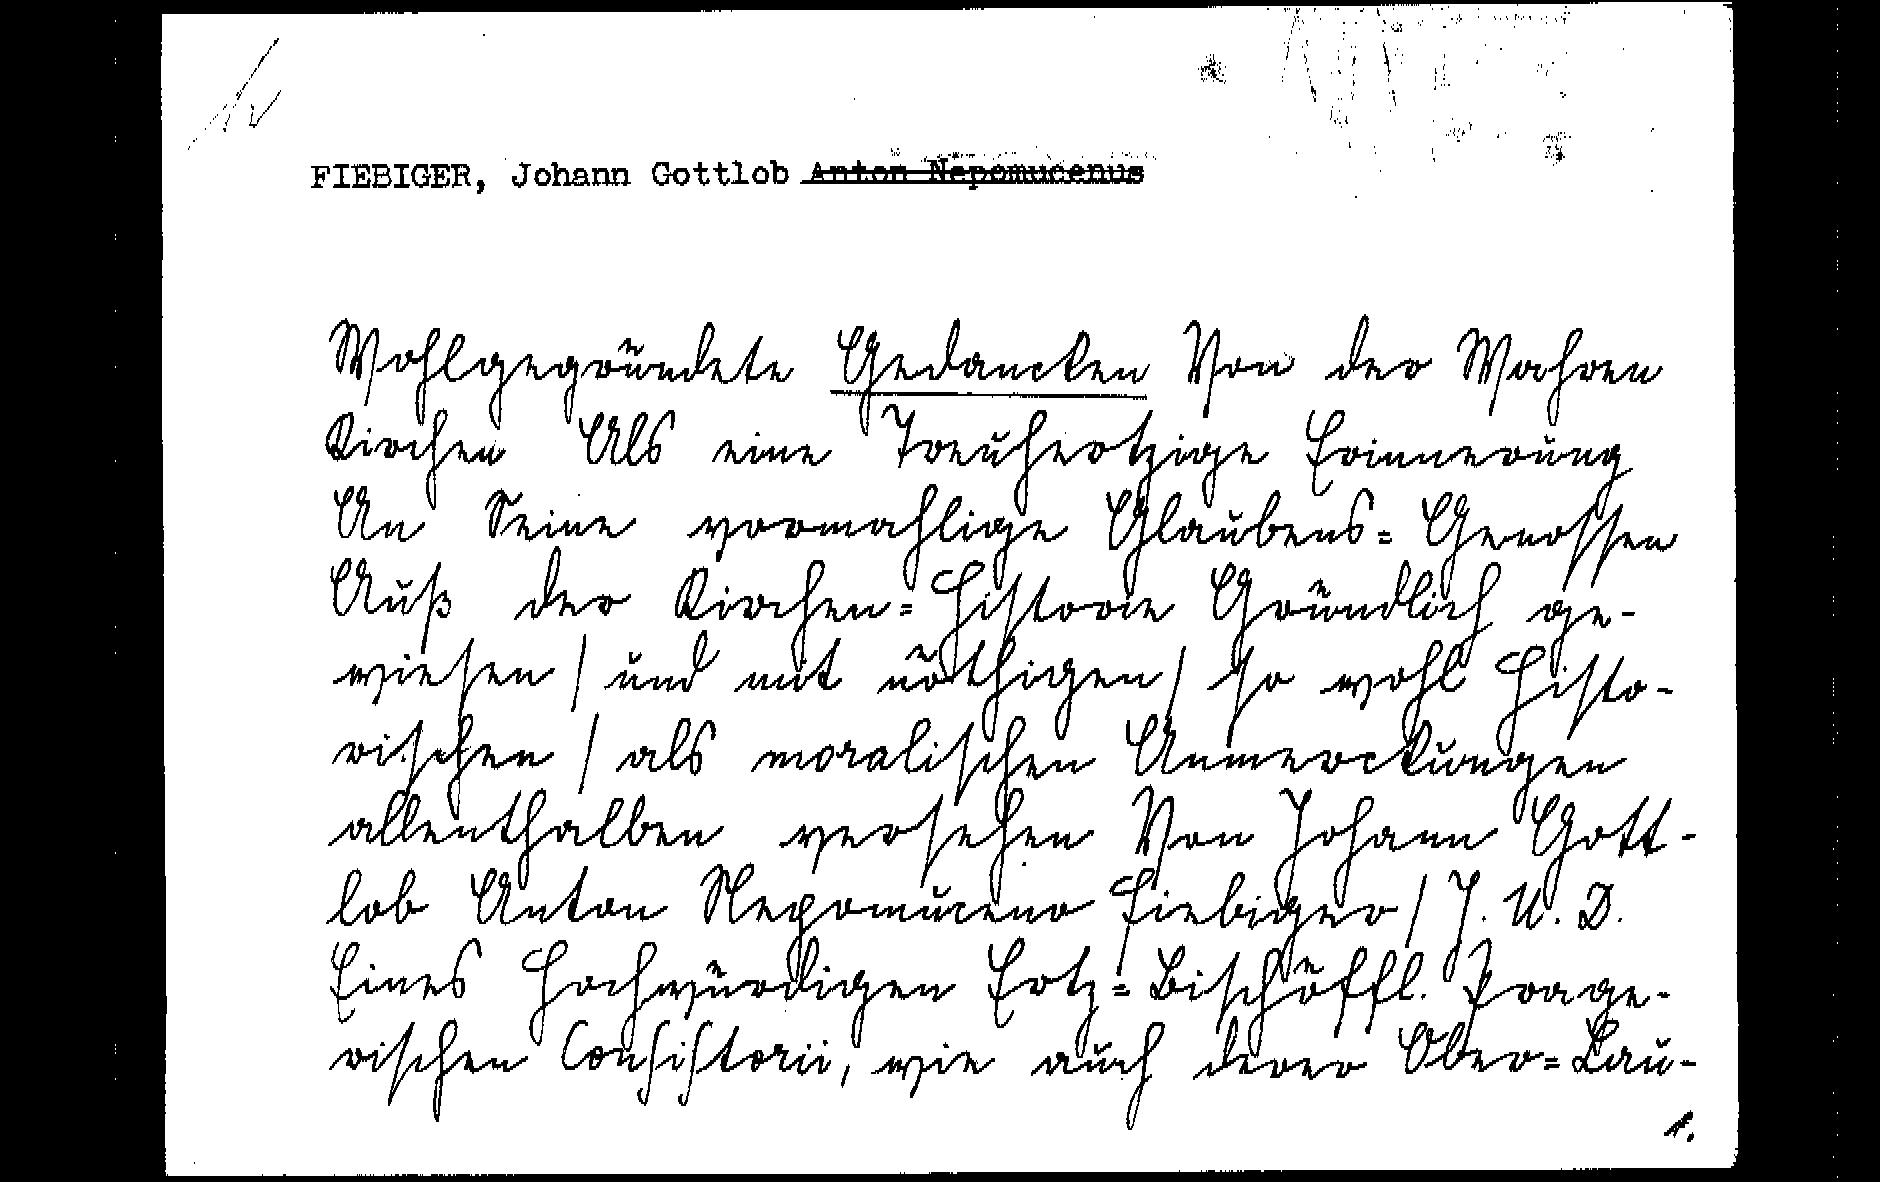 FIEBIGER, Johann Gottlob Anton Nepomucenus
Wohlgegründete Gedancken Von der Wahren
Kirchen Als eine Treuhertzige Erinnerung
An Seine vormahlige Glaubens= Genossen
Auß der Kirchen= Historie Gründlich ge-
wiesen / und mit nöthigen / so wohl Histo-
rischen / als moralischen Anmerckungen
allenthalben versehen Von Johann Gott-
lob Anton Nepomuceno Fiebiger / J. U. D.
Eines Hochwürdigen Ertz=Bischöffl. Prage-
rischen Consistorii, wie auch derer Ober=Lau-
1.